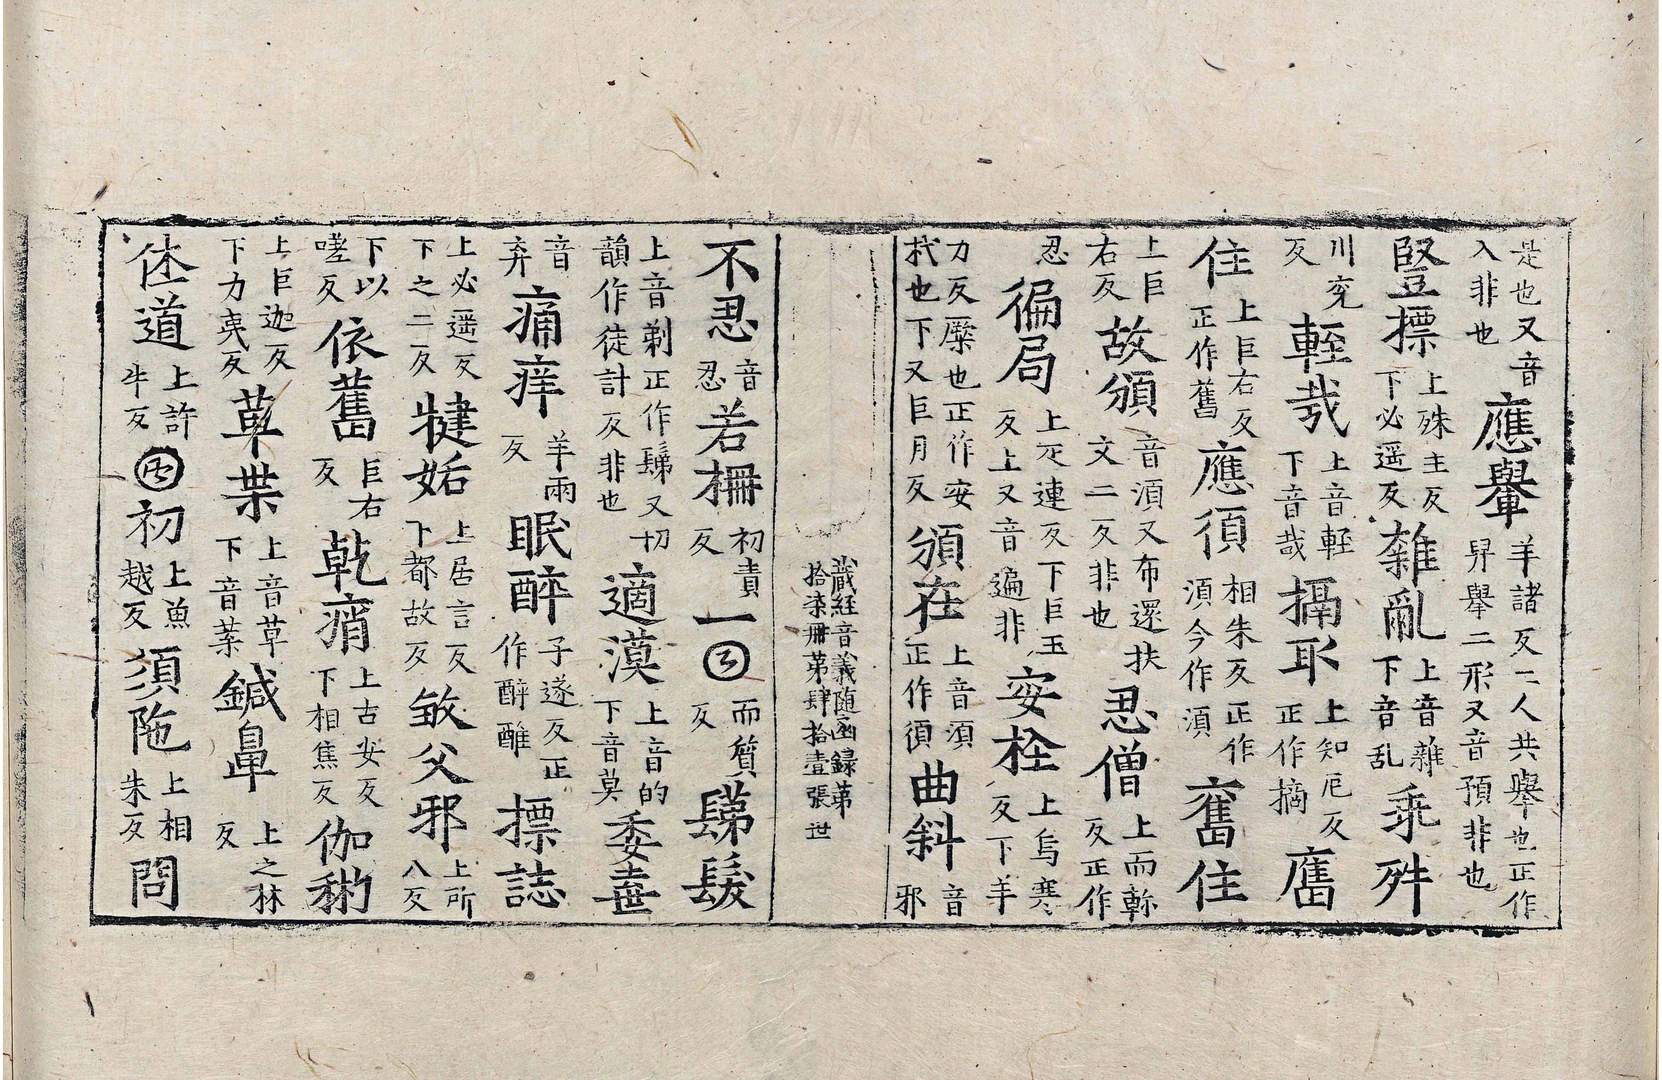 是也又音入非也應轝羊諸反二人共轝也正作舁轝二形又音預非也
豎摽上殊主反下必遥反雜亂上音雜下音乱乖舛
川兖反輊㢤上音輊下音哉搹取上知厄反正作摘舊
住上巨右反正作舊應須相朱反正作湏今作湏舊住
上巨右反故頒音湏又布還扶文二反非也忍僧上而軫反正作
忍徧局上疋連反下巨玉反上又音遍非安栓上烏寒反下羊
力反橜也正作安杙也下又巨月反頒在上音須正作須曲斜音邪
藏經音義随函録第拾柒冊第肆拾壹張 世
不忍音忍若柵初責反一日而質反鬀髮
上音剃正作鬀又切韻作徒計反非也適漠上音的下音莫委壺
音弃痛痒羊兩反眠醉子遂反正作醉醀摽誌
上必遥反下之二反犍姤上居言反下都故反敓父邪上所八反
下以嗟反依舊巨右反乾痟上古安反下相焦反伽㮈
上巨迦反下力夷反草葉上音草下音葉鍼鼻上之林反
休道上許牛反月初上魚越反須陁上相朱反問